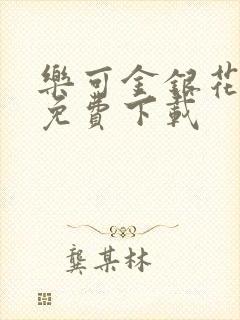 樂可金銀花
免費下載
龔某林